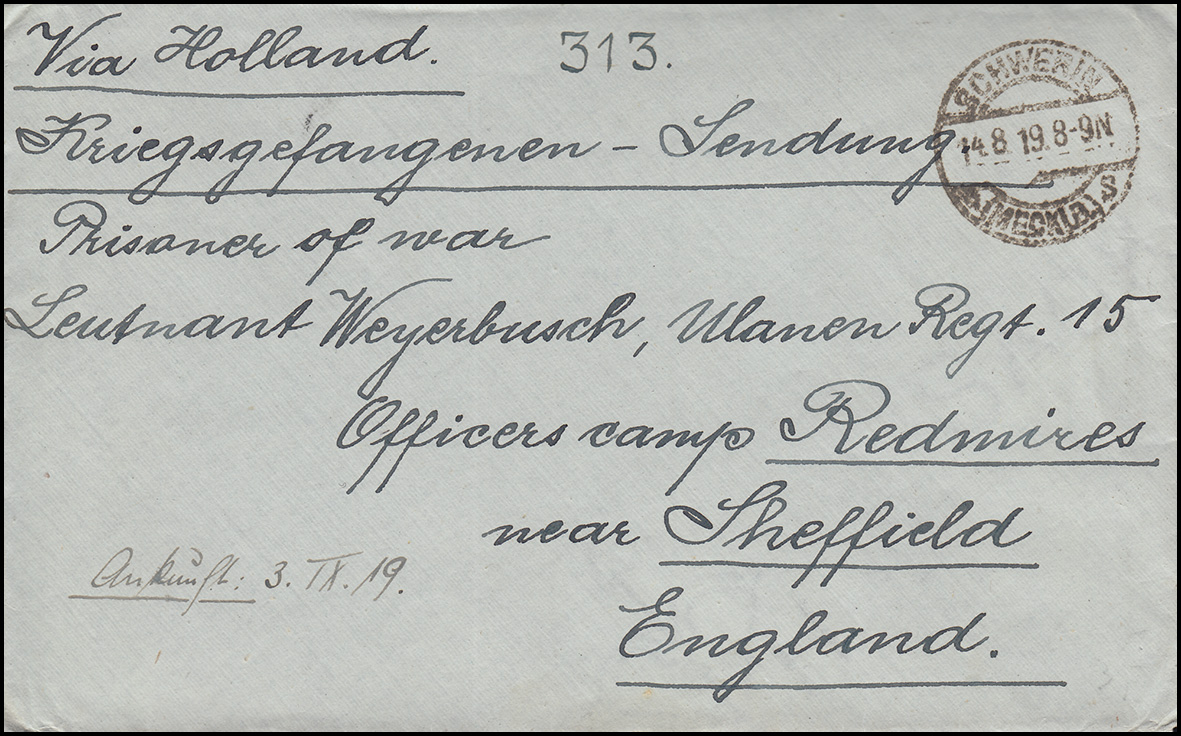 Via Holland. 313.
SCHWERIN
14.8.19.8-9N
(MECKLB.) S
Kriegsgefangenen - Sendung.
Prisoner of war
Leutnant Weyerbusch, Ulanen Regt. 15
Officers camp Redmires
near Sheffield
Ankunft: 3. IX. 19.
England.